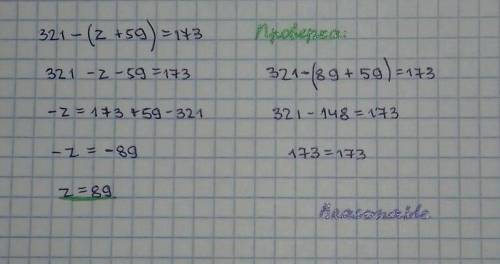 321-(z+59)=173
321 -z-59=173
-z=173+59-321
-z = -89
z=89
Проверка:
321-(89+59)=173
321-148=173
173=173